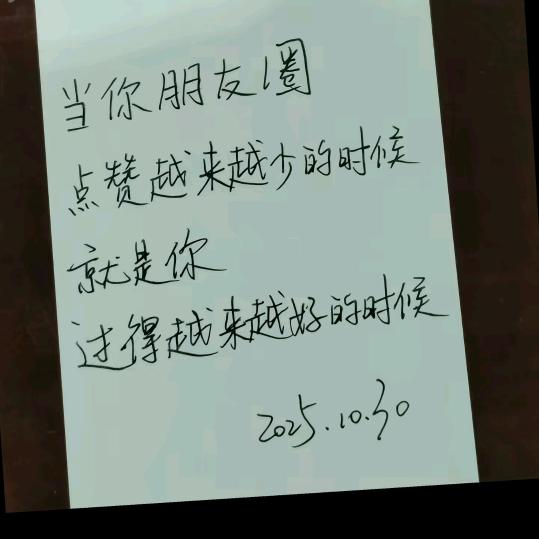 当你朋友圈
点赞越来越少的时候
就是你
过得越来越好的时候
2025.10.30